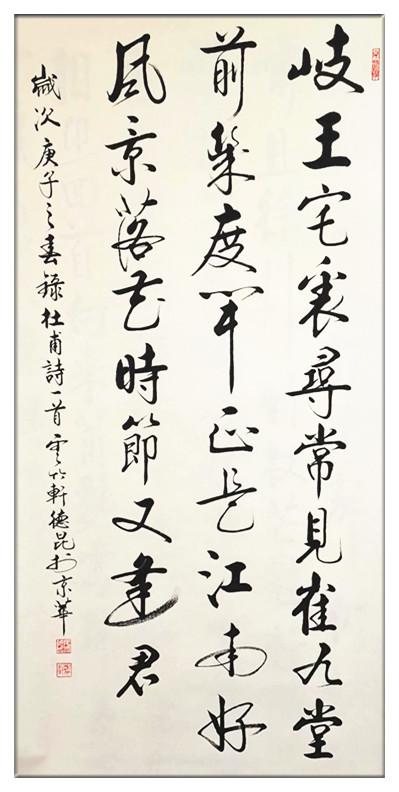 岐王宅裏尋常見崔九堂
前幾度聞正是江南好
風景落花時節又逢君
歲次庚子之春錄杜甫詩一首雲竹軒德昆於京華